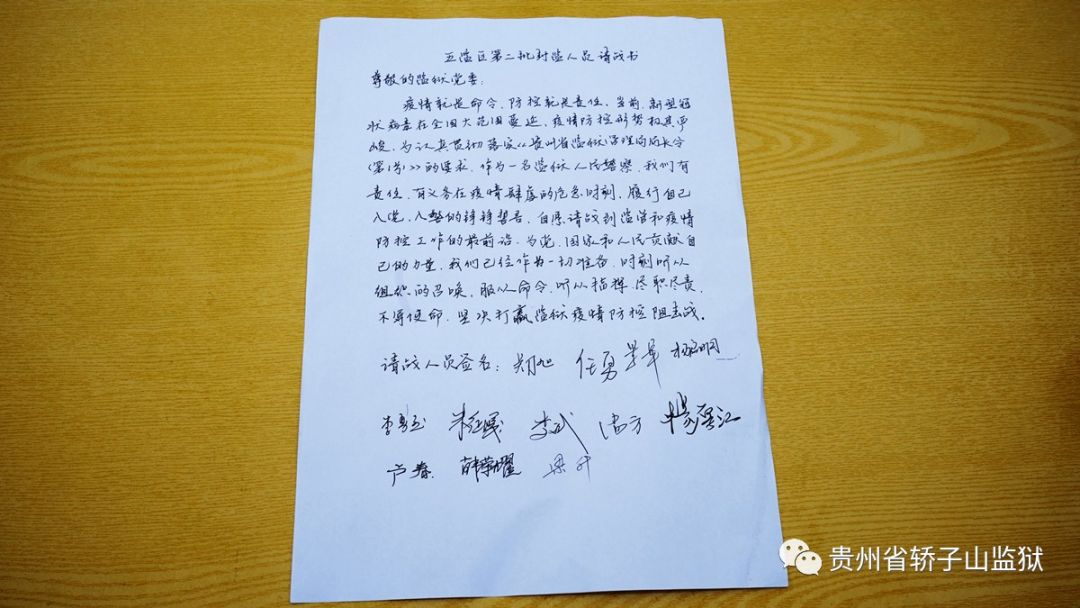 五监区第二批封监人员请战书
尊敬的监狱党委：
疫情就是命令，防控就是责任。当前，新型冠
状病毒在全国大范围蔓延，疫情防控形势极其严
峻，为认真贯彻落实《贵州省监狱管理局局长令
（第1号）》的要求，作为一名监狱人民警察，我们有
责任、有义务在疫情肆虐的危急时刻，履行自己
入党、入警的铮铮誓言，自愿请战到监管和疫情
防控工作的最前沿，为党、国家和人民贡献自
己的力量，我们已经作为一切准备，时刻听从
组织的召唤，服从命令，听从指挥，尽职尽责，
不辱使命，坚决打赢监狱疫情防控阻击战。
请战人员签名：任勇
李武
卢春 梁升
贵州省轿子山监狱